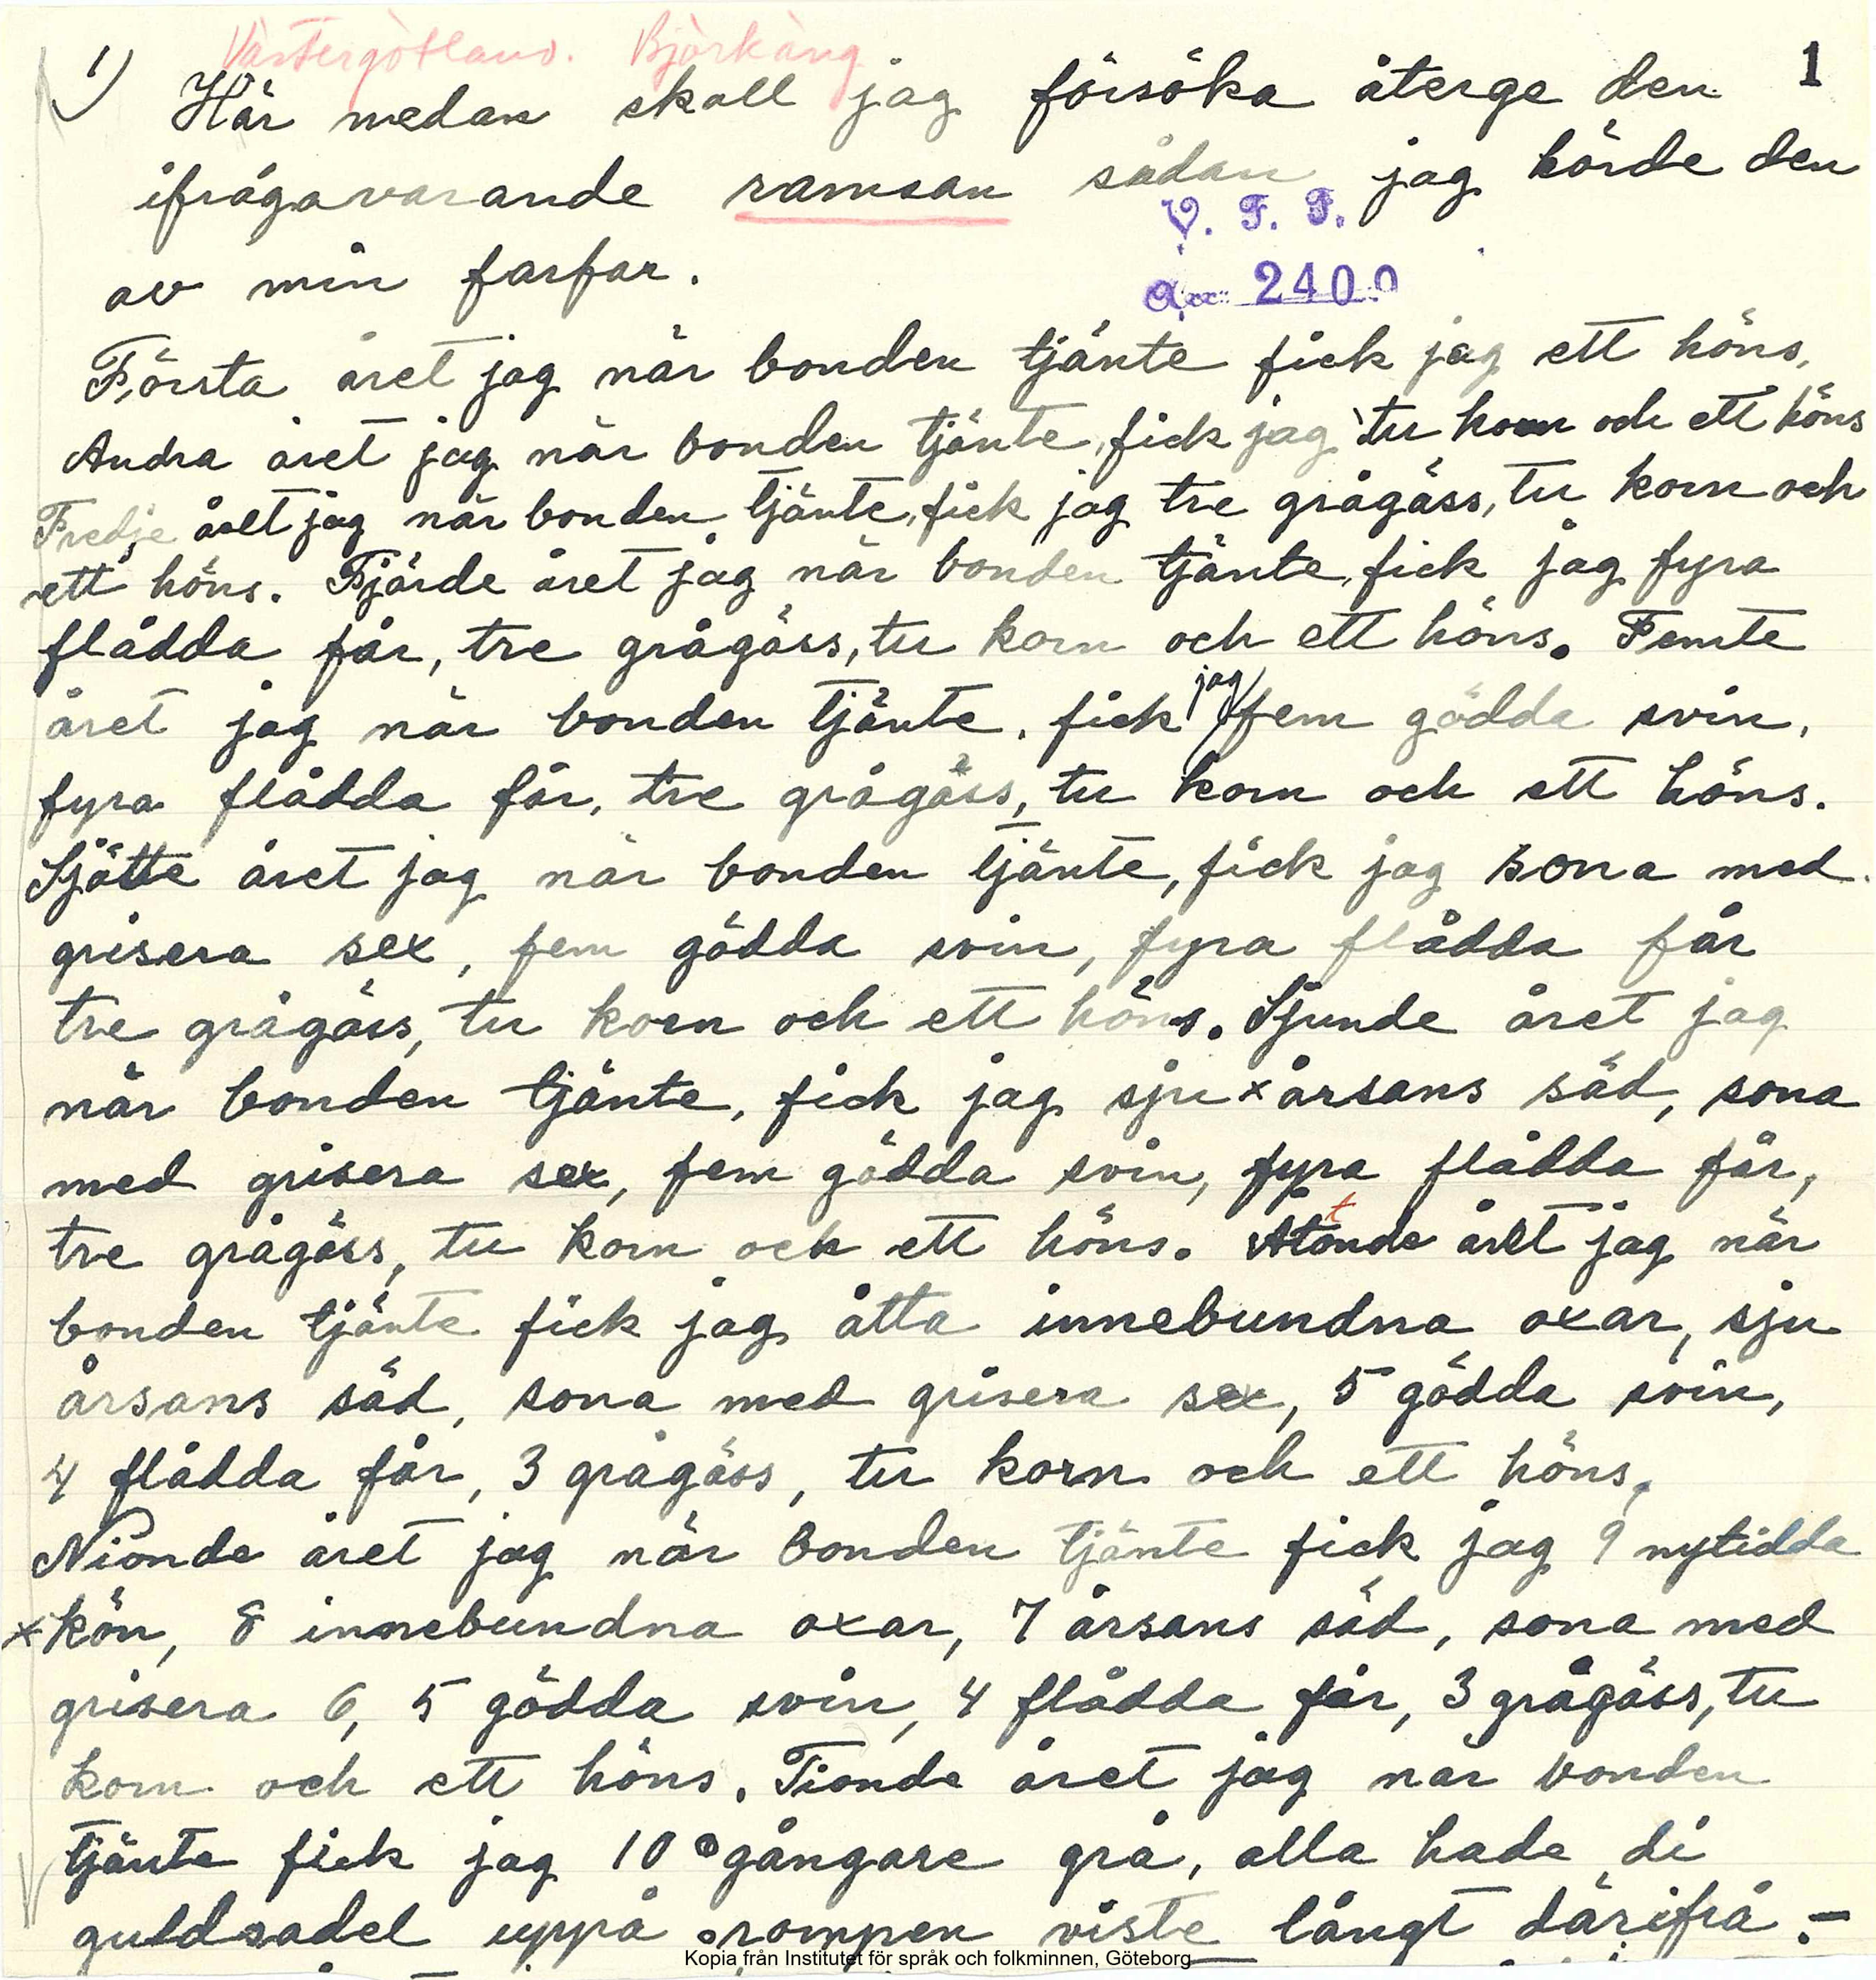 Västergötland. Björkäng
1) Här medan skall jag försöka återge den 1
ifrågavarande ramsan sådan jag hörde den
V. F. F.
av min farfar.
Acc. 2400
Första året jag när bonden tjänte fick jag ett höns,
Andra året jag när bonden tjänte, fick jag tu korn och ett höns
Tredje året jag när bonden tjänte, fick jag tre grågäss, tu korn och
ett höns. Fjärde året jag när bonden tjänte, fick jag fyra
flådda får, tre grågäss, tu korn och ett höns. Femte
året jag när bonden tjänte, fick jag fem gödda svin,
fyra flådda får, tre grågäss, tu korn och ett höns.
Sjätte året jag när bonden tjänte, fick jag sona med
grisera sex, fem gödda svin, fyra flådda får
tre grågäss, tu korn och ett höns. Sjunde året jag
när bonden tjänte, fick jag sju x årsans säd, sona
med grisera sex, fem gödda svin, fyra flådda får,
tre grågäss, tu korn och ett höns. Åttonde året jag när
bonden tjänte fick jag åtta innebundna oxar, sju
årsans säd, sona med grisera sex, 5 gödda svin,
4 flådda får, 3 grågäss, tu korn och ett höns,
Nionde året jag när bonden tjänte fick jag 9 nytidda
x kön, 8 innebundna oxar, 7 årsans säd, sona med
grisera 6, 5 gödda svin, 4 flådda får, 3 grågäss, tu
korn och ett höns. Tionde året jag när bonden
tjänte fick jag 10 gångare grå, alla hade di
guldsadel uppå rompen viste långt därifrå.-
Kopia från Institutet för språk och folkminnen, Göteborg